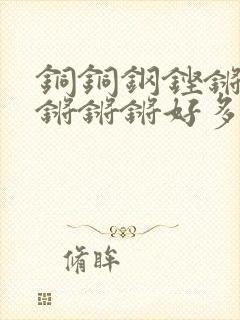 銅銅鋼鏗鏘
鏘鏘鏘好多
脩眸